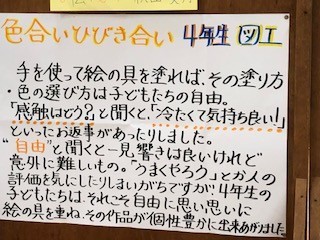 色合いひびき合い 4年生 図工
手を使って絵の具を塗れば、その塗り方
・色の選び方は子どもたちの自由。
「感触はどう?」と聞くと、「冷たくて気持ち良い!」
といったお返事があったりしました。
"自由"と聞くと一見響きは良いけれど
意外に難しいもの。"うまくやろう"とか人の
評価を気にしたりしまいがちですが、4年生の
子どもたちは、それこそ自由に思い思いに
絵の具を重ね、その作品が個性豊かに出来あがりました